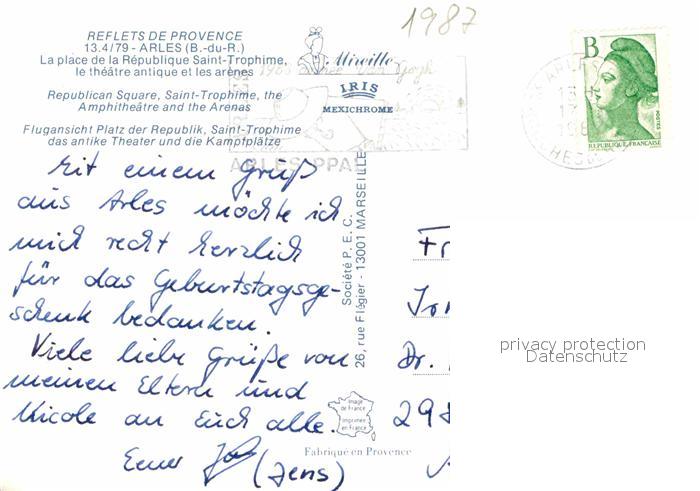 1987
REFLETS DE PROVENCE
13.4/79 - ARLES (B.-du-R.)
La place de la République Saint-Trophime,
le théâtre antique et les arènes
Republican Square, Saint-Trophime, the
Amphitheatre and the Arenas
Flugansicht Platz der Republik, Saint-Trophime
das antike Theater und die Kampfplätze
Mireille
IRIS
MEXICHROME
ARLES PPAL
B
POSTES
REPUBLIQUE FRANÇAISE
ARLES
Mit einem Gruß
aus Arles möchte ich
mich recht herzlich
für das Geburtstagsge-
schenk bedanken.
Viele liebe Grüße von
meinen Eltern und
Nicole an Euch alle.
Euer
(Jens)
Société P. E. C.
26, rue Flégier - 13001 MARSEILLE
Image
de France
Imprimée
en France
Fabriqué en Provence
Fr
Dr.
298
privacy protection
Datenschutz